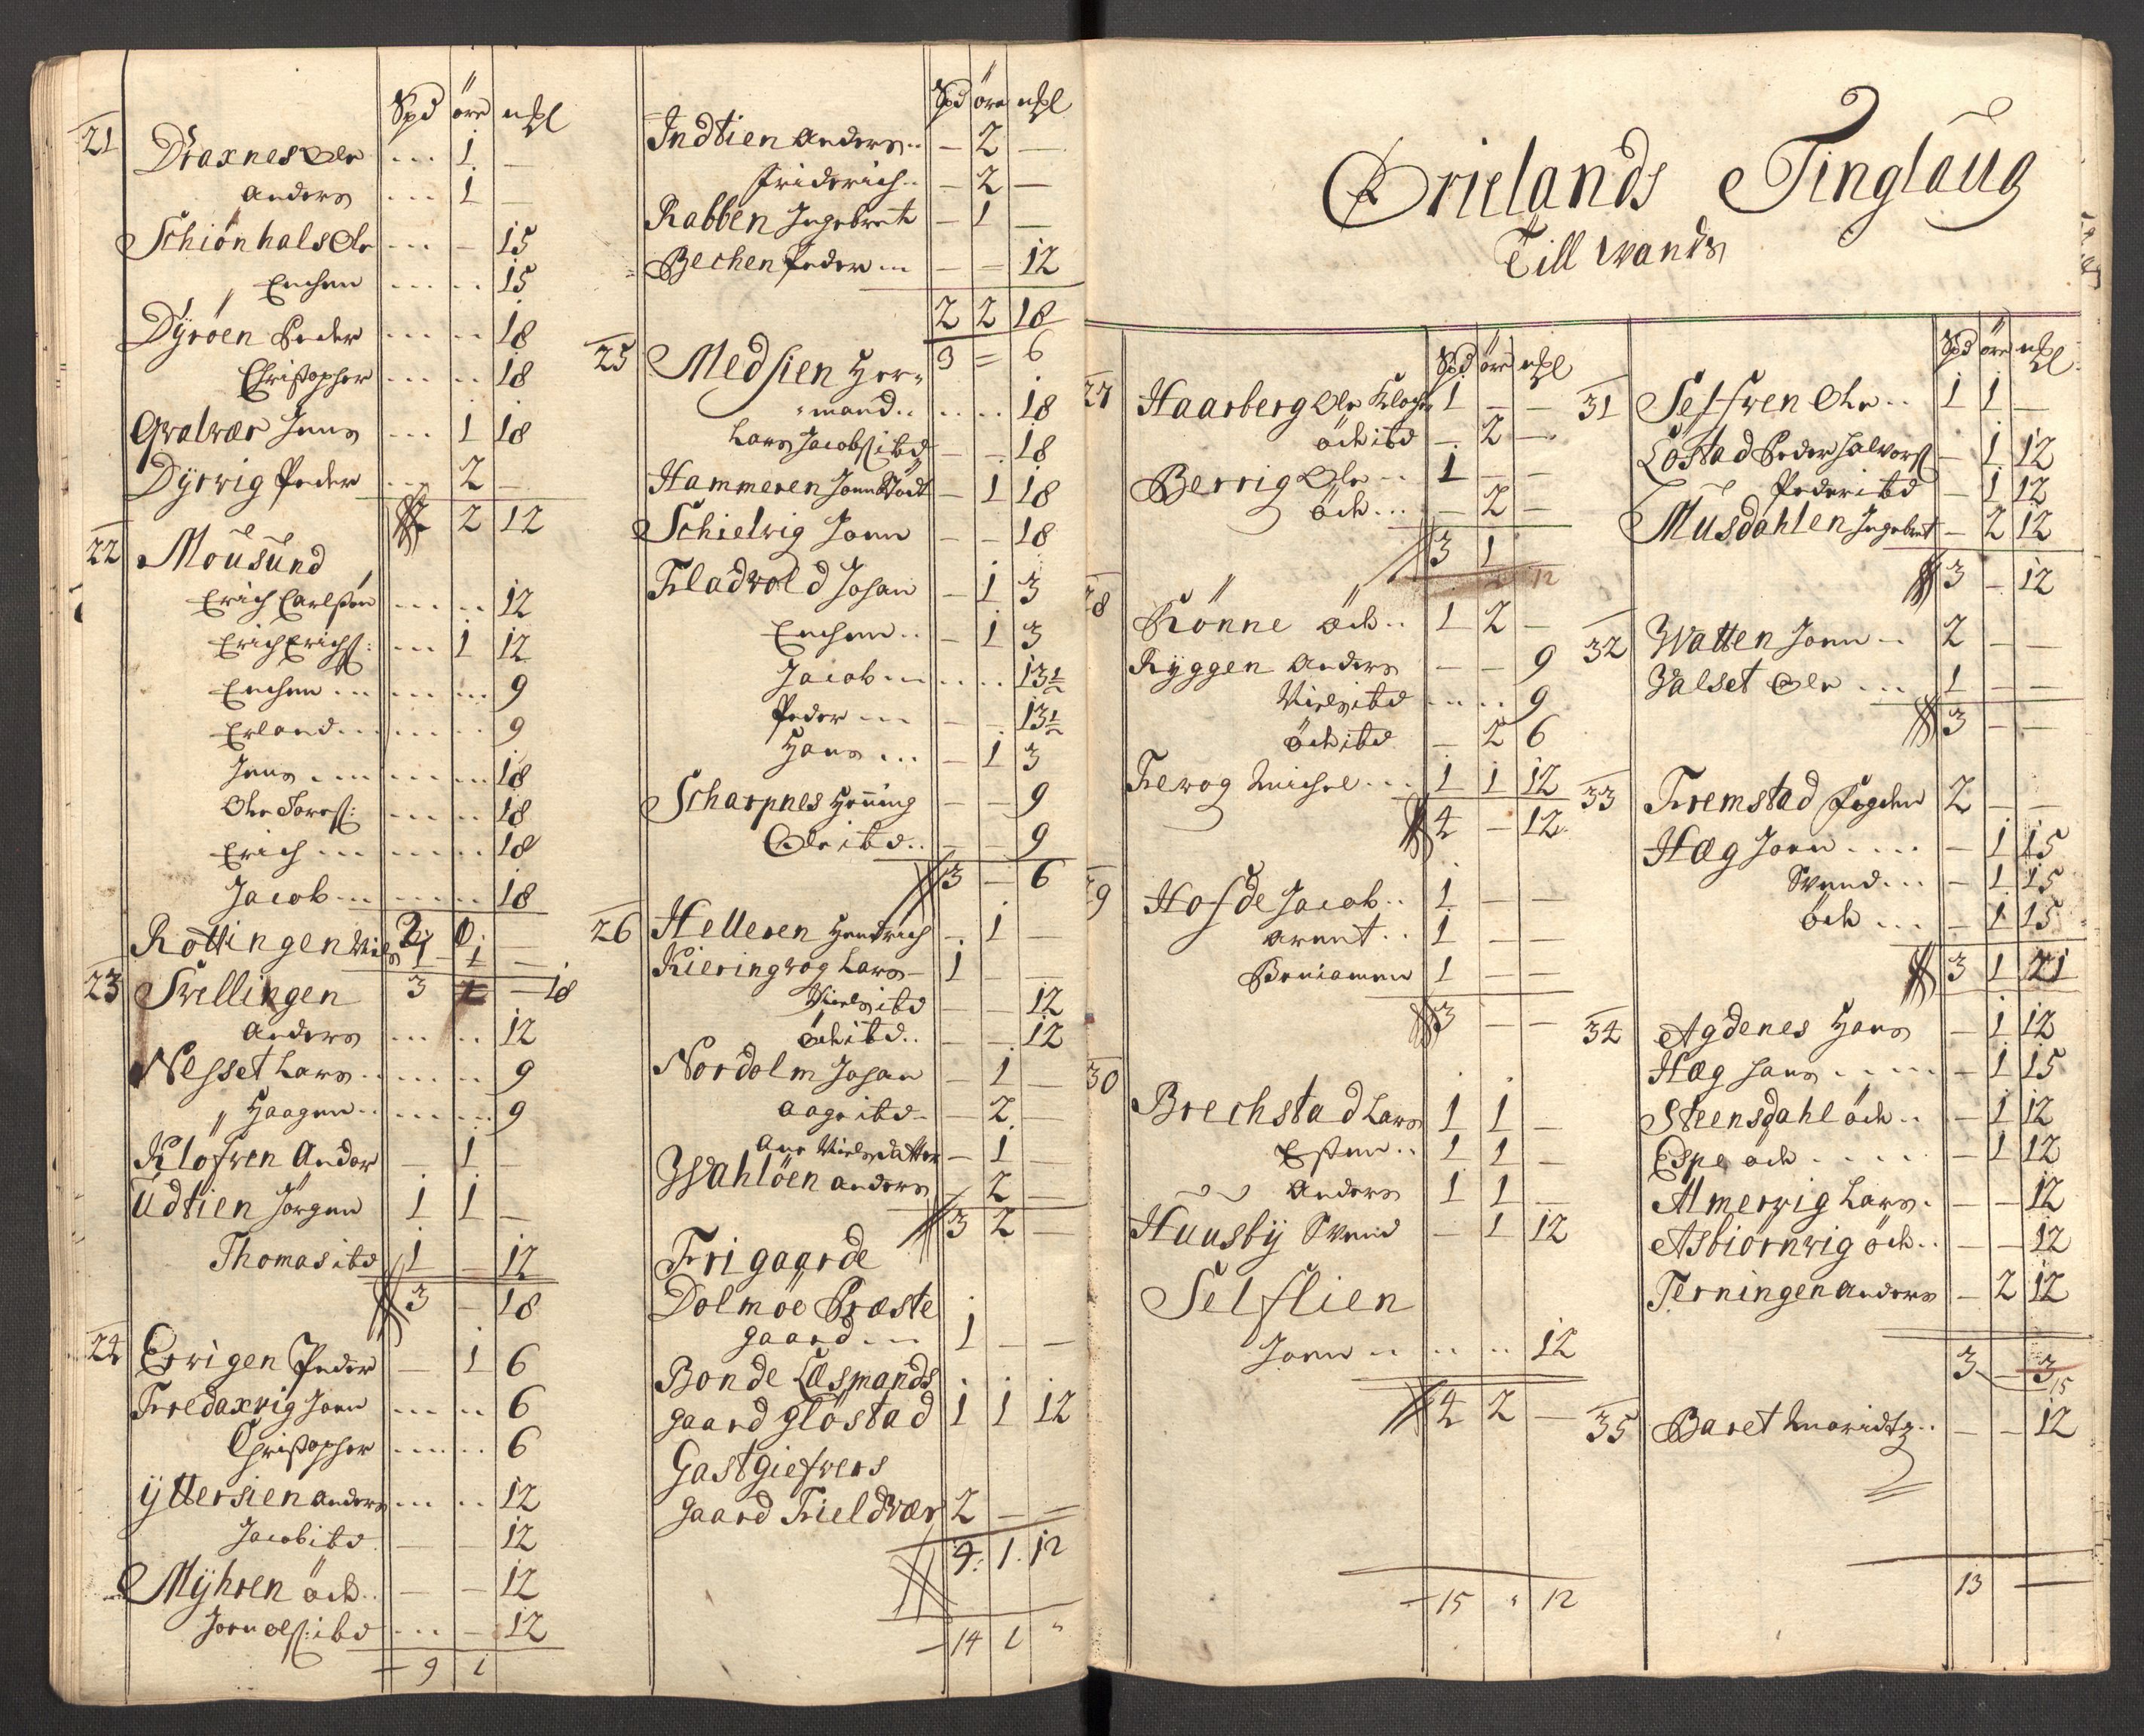 Spd öre mgl
21 Draxnes Ole ... 1 —
Anders ... 1 —
Schiönhals Ole ... — 15
Enchen ... .. 15
Dÿröen Peder ... .. 18
Christopher ... .. 18
Qvalvær Jens ... 1 18
Dÿrvig Peder ... 2 —
2 2 12
22 Mousund
Erich Carlsen ... .. 12
Erich Erichs: ... 1 12
Enchen ... ... .. 9
Erland ... ... .. 9
Jens ... ... .. 18
Ole Tores: ... .. 18
Erich ... ... .. 18
Jacob ... ... .. 18
Rottingen Niels 1 1 —
23 Svellingen 3 1 — 18
Anders ... .. 12
Nesset Lars .. ... .. 9
„ Haagen .. ... .. 9
Klöfven Ander — 1 —
Udtien Jörgen 1 1 —
Thomas ibd 1 — 12
3 — 18
24 Ervigen Peder — 1 6
Fredaxvig Joen ... .. 6
Christopher ... .. 6
ÿttersien Anders ... .. 12
Jacob ibd — — 12
Mÿhren öde .. — — 12
Joen Ols: ibd ... — 12
9 1
Spd öre mgl
Indtien Anders .. — 2 —
Friderich .. — 2 —
Rabben Ingebret — 1 —
Bechen Peder ... — — 12
2 2 18
25 Medsien Her= 3 = 6
=mand .. ... .. 18
Lars Jacobs ibd — — 18
Hammeren Joen Stödt — 1 18
Schielvig Joen — — 18
Fladvold Johan — 1 3
Enchen .. — 1 3
Jacob ... ... .. 13½
Peder ... — — 13½
Hans ... — 1 3
Scharpnes Henning — — 9
Ole ibd .. — — 9
3 — 6
26 Helleren Hendrich — 1 —
Kieringvog Lars — 1 — —
Niels ibd — — 12
öde ibd .. — — 12
Nordolm Johan — 1 —
Aage ibd — — 2 —
Ane Nielsdatter — 1 —
Wahlöen Anders — 2 —
3 2 —
Frigaarde
Dolmöe Præste
gaard ... 1 — —
Bonde Læsmands
gaard Glöstad 1 1 12
Gastgiefvers
gaard Fieldvær 2 — =
4 . 1 . 12
14 1 "
Ørielands Tinglaug
Till Wands
Spd öre mgl
27 Haarberg Ole Kloch 1 — —
öde ibd — 2 —
Berrig Ole .. 1 — —
öde ... — 2 —
3 1
12
28 Rönne öde .. 1 2 —
Rÿggen Anders — — 9
Niels ibd ... .. 9
öde ibd — 2 6
Fevog Michel ... 1 1 12
4 — 12
29 Hofde Jacob .. 1 — —
Arent .. 1 — —
Beniamen 1 — —
3 — —
30 Brechstad Lars 1 1 —
Esten .. 1 1 —
Anders 1 1 —
Huusbÿ Svend — 1 12
Selflien
Joen .. .. .. 12
4 2 —
15 " 12
Spd öre mgl
31 Selfven Ole .. 1 1 —
Löstad Peder Halvors — 1 12
Peder ibd — 1 12
Musdahlen Ingebret — 2 12
3 — 12
32 Watten Joen .. 2 — —
Valset Ole ... 1 — —
3 — —
33 Fremstad Fogden 2 — —
Hæg Joen .... — 1 15
Svend ... — 1 15
öde ... — 1 15
3 1 21
34 Agdenes Hans — 1 12
Hæg Hans .... — 1 15
Steensdahl öde .. — 1 12
Espe öde .... — 1 12
Almervig Lars . — — 12
Asbiörnvig öde .. — — 12
Terningen Anders — 2 12
3 — 3
15
35 Baret Mauridtz .. — — 12
13 —